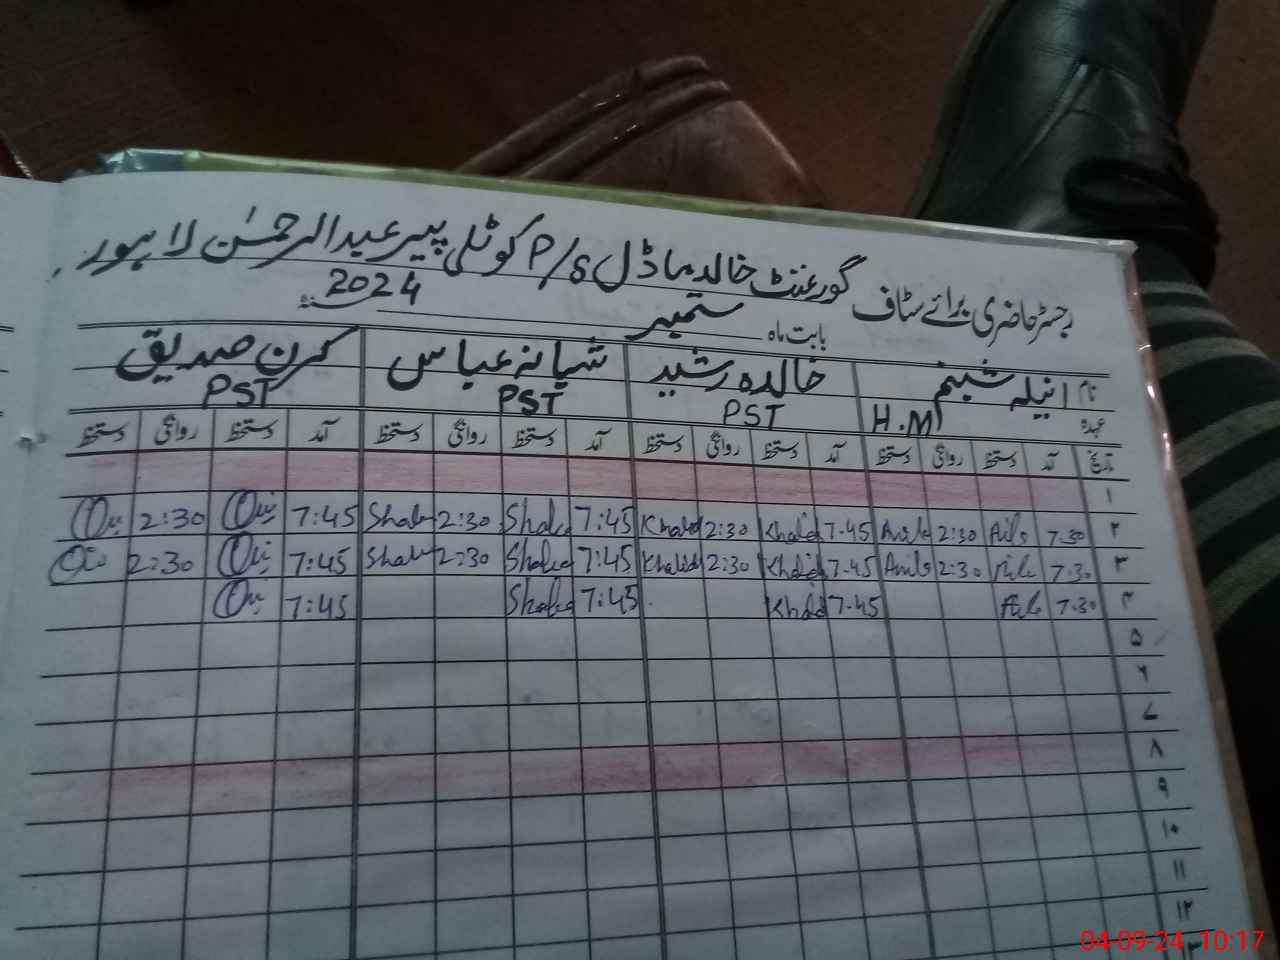 رجسٹر حاضری برائے سٹاف گورنمنٹ خالد ماڈل P/S کوٹلی پیر عبدالرحمٰن لاہور
بابت ماہ ستمبر 2024
نام انیلہ شبنم خالدہ رشید شبانہ عباس کرن صدیق
عہدہ H.M PST PST PST
تاریخ آمد دستخط روانگی دستخط آمد دستخط روانگی دستخط آمد دستخط روانگی دستخط آمد دستخط روانگی دستخط
۱
۲ 7.30 2:30 7.45 Khalid 2:30 Khalid 7:45 2:30 7:45 2:30
۳ 7.30 2:30 7.45 Khalid 2:30 Khalid 7:45 2:30 7:45 2:30
۴ 7.30 7.45 7:45 7:45
۵
۶
۷
۸
۹
۱۰
۱۱
۱۲
۱۳
04-09-24 10:17